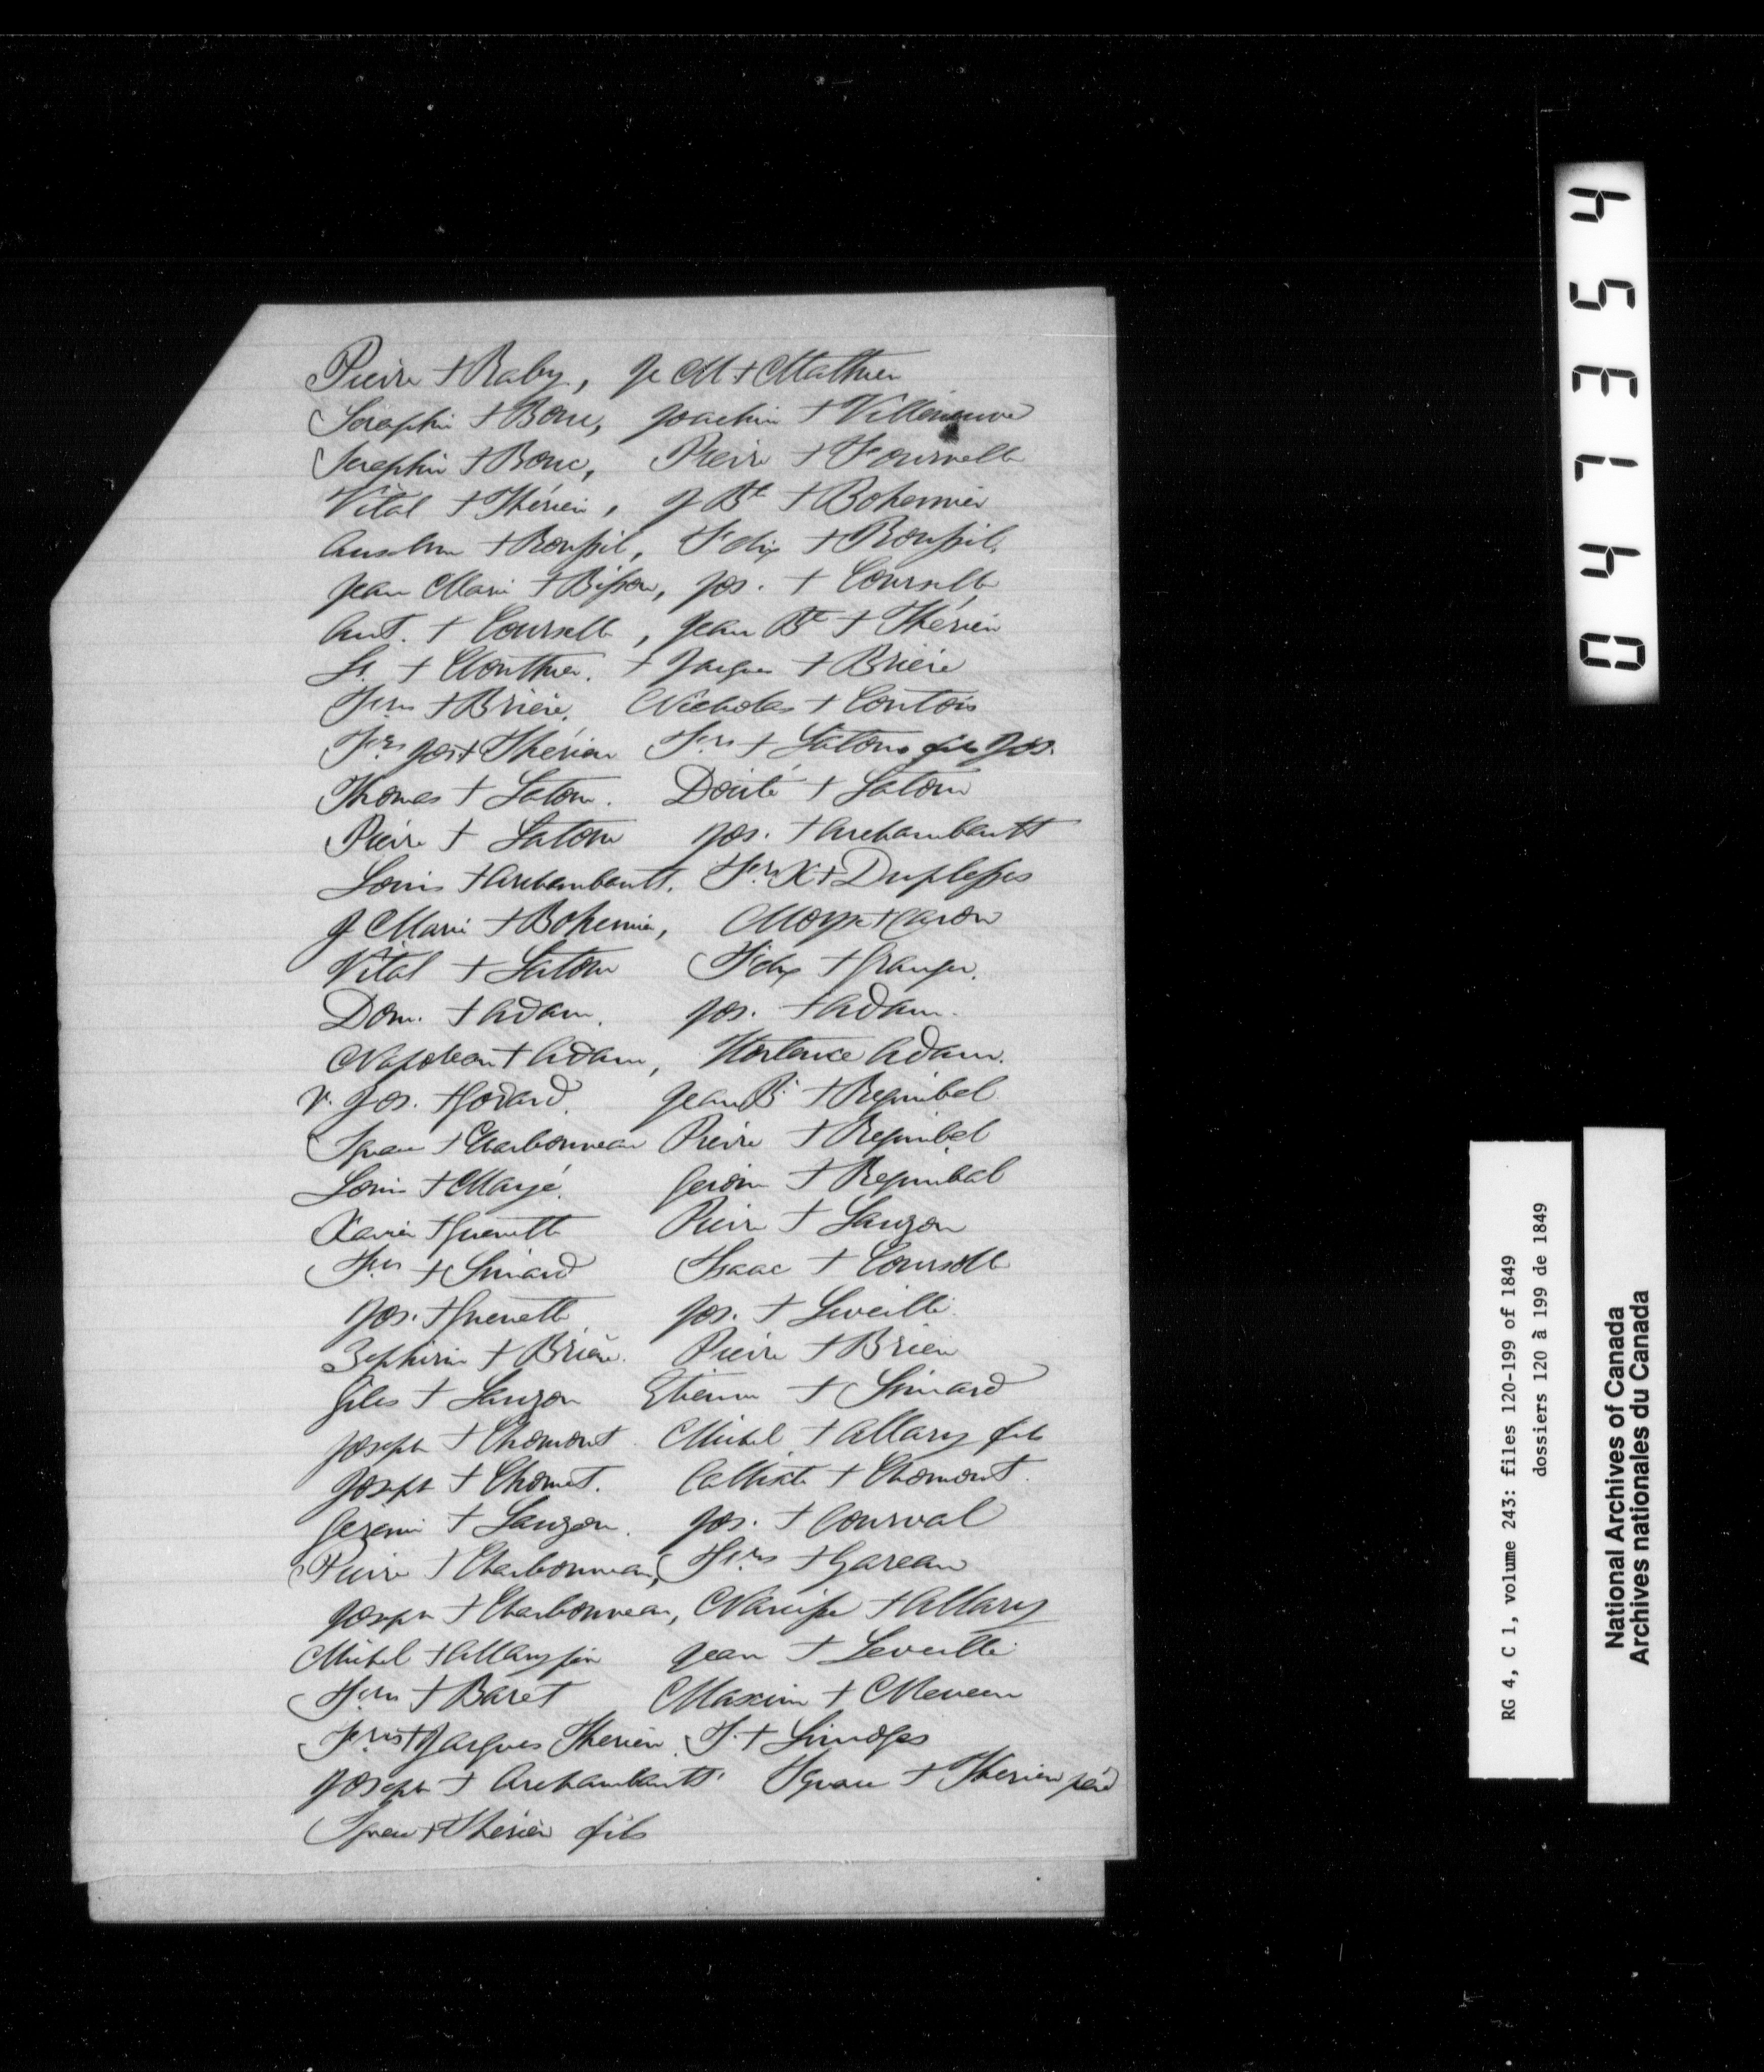 Pierre + Raby, J M + Mathieu
Seraphin + Bouc, Joachim + Villeneuve
Seraphin + Bouc, Pierre + Fournelle
Vital + Thérien, J Bte + Bohemier
Anselme + Roussil, Felix + Roussil,
Jean Marie + Bisson, Jos. + Courselle
Ant. + Courselle, Jean Bte + Thérien
Ls. + Gonthier. + Jacques + Brière
Frs + Brière. Nicholas + Contois
Frs Jos + Therien Frs + Latour fils Jos.
Thomas + Latour. Doité + Latour
Pierre + Latour Jos. + Archambault
Louis + Archambault. Frs X + Duplessis
J Marie + Bohemier, Moyse + Caron
Vital + Latour Felix + Granger.
Dom. + Adam. Jos. + Adam.
Napoleon + Adam, Hortence Adam.
v. Jos. + Godard. Jean B + Regimbal
Ignace + Charbonneau Pierre + Regimbal
Louis + Mayé. Gerom + Regimbal
Xavier + Guenette Pierre + Lauzon
Frs + Simard Isaac + Coursolle
Jos. + Guenette Jos. + Leveillé
Zephirin + Brière. Pierre + Brien
Giles + Lauzon Etienne + Simard
Joseph + Chomont. Michel + Allary fils
Joseph + Chomont. Callixte + Chomont.
Gezemi + Lauzon. Jos. + Courval
Pierre + Charbonneau, Frs + Gareau
Joseph + Charbonneau, Narcisse + Allary
Michel + Allary père Jean + Leveillé
Frs + Baret Maxime + Meveen
Frs + Jacques Therien F. + Limoges
Joseph + Archambault Ignace + Therien père
Ignace + Thérien fils
0 4 7 3 5 4
RG 4, C 1, volume 243: files 120-199 of 1849
dossiers 120 à 199 de 1849
National Archives of Canada
Archives nationales du Canada